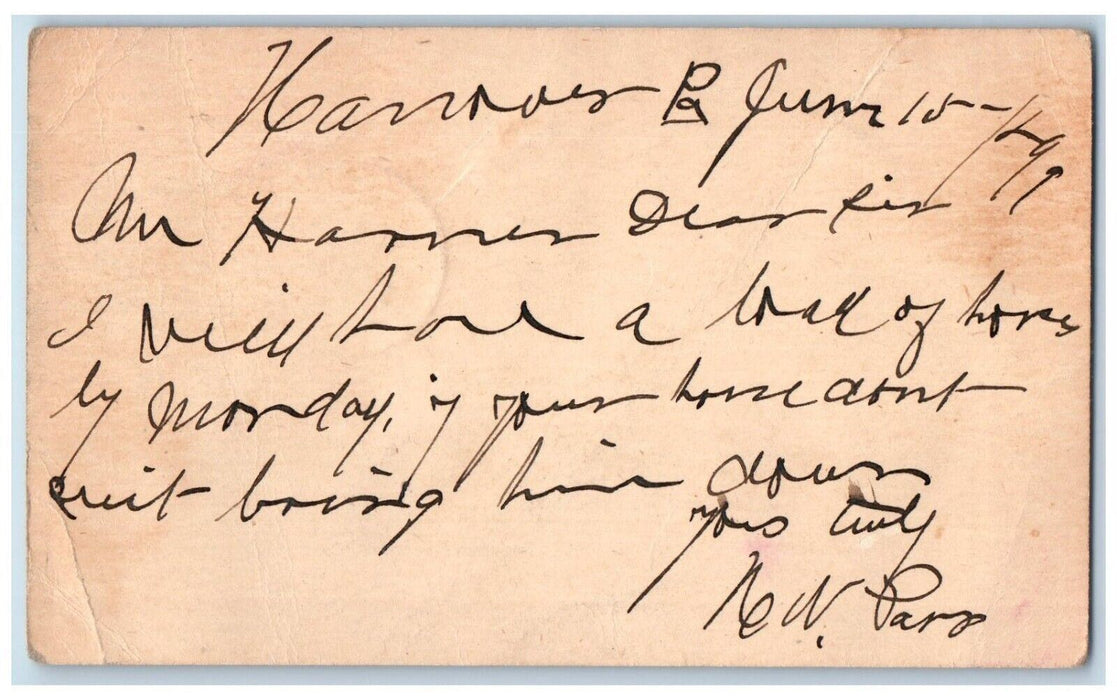 Hanover Pa June 15 - 1899
Mr Harner Dear Sir
I will have a load of horses
by Monday, if your horse dont
suit bring him down
yours truly
H W. Parr